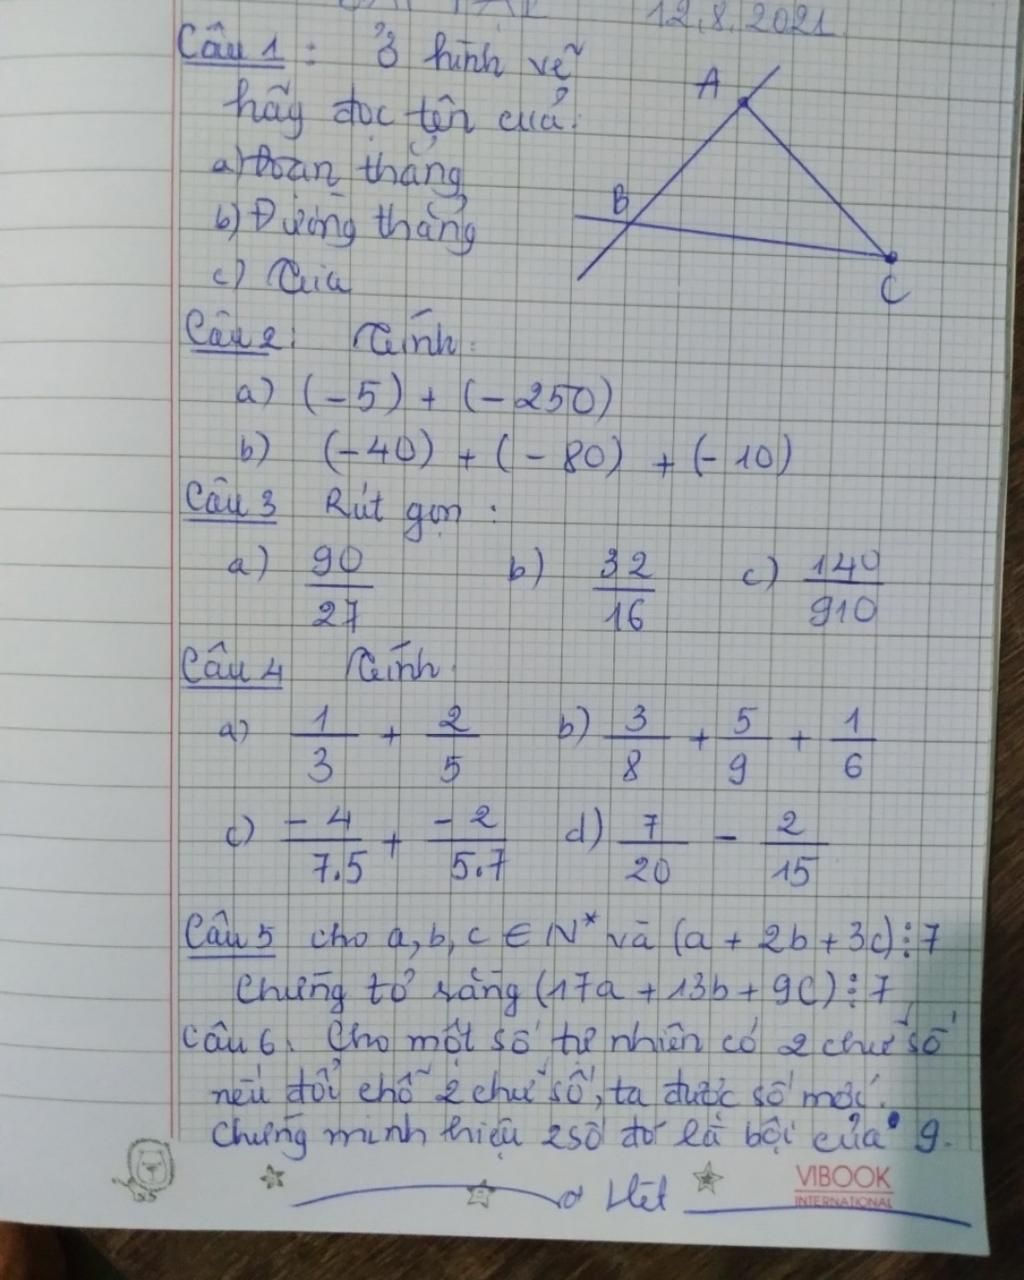 12.8.2021
Câu 1 : Ở hình vẽ
hãy đọc tên của:
a) Đoạn thẳng
b) Đường thẳng
c) Tia
A
B
C
Câu 2: Tính:
a) (-5) + (-250)
b) (-40) + (-80) + (-10)
Câu 3 Rút gọn :
a) 90/27 b) 32/16 c) 140/910
Câu 4 Tính
a) 1/3 + 2/5 b) 3/8 + 5/9 + 1/6
c) -4/7.5 + -2/5.7 d) 7/20 - 2/15
Câu 5 cho a, b, c ∈ N* và (a + 2b + 3c) ⋮ 7
Chứng tỏ rằng (17a + 13b + 9c) ⋮ 7
Câu 6. Cho một số tự nhiên có 2 chữ số
nếu đổi chỗ 2 chữ số, ta được số mới.
Chứng minh hiệu 2 số đó là bội của 9.
Hết
VIBOOK
INTERNATIONAL